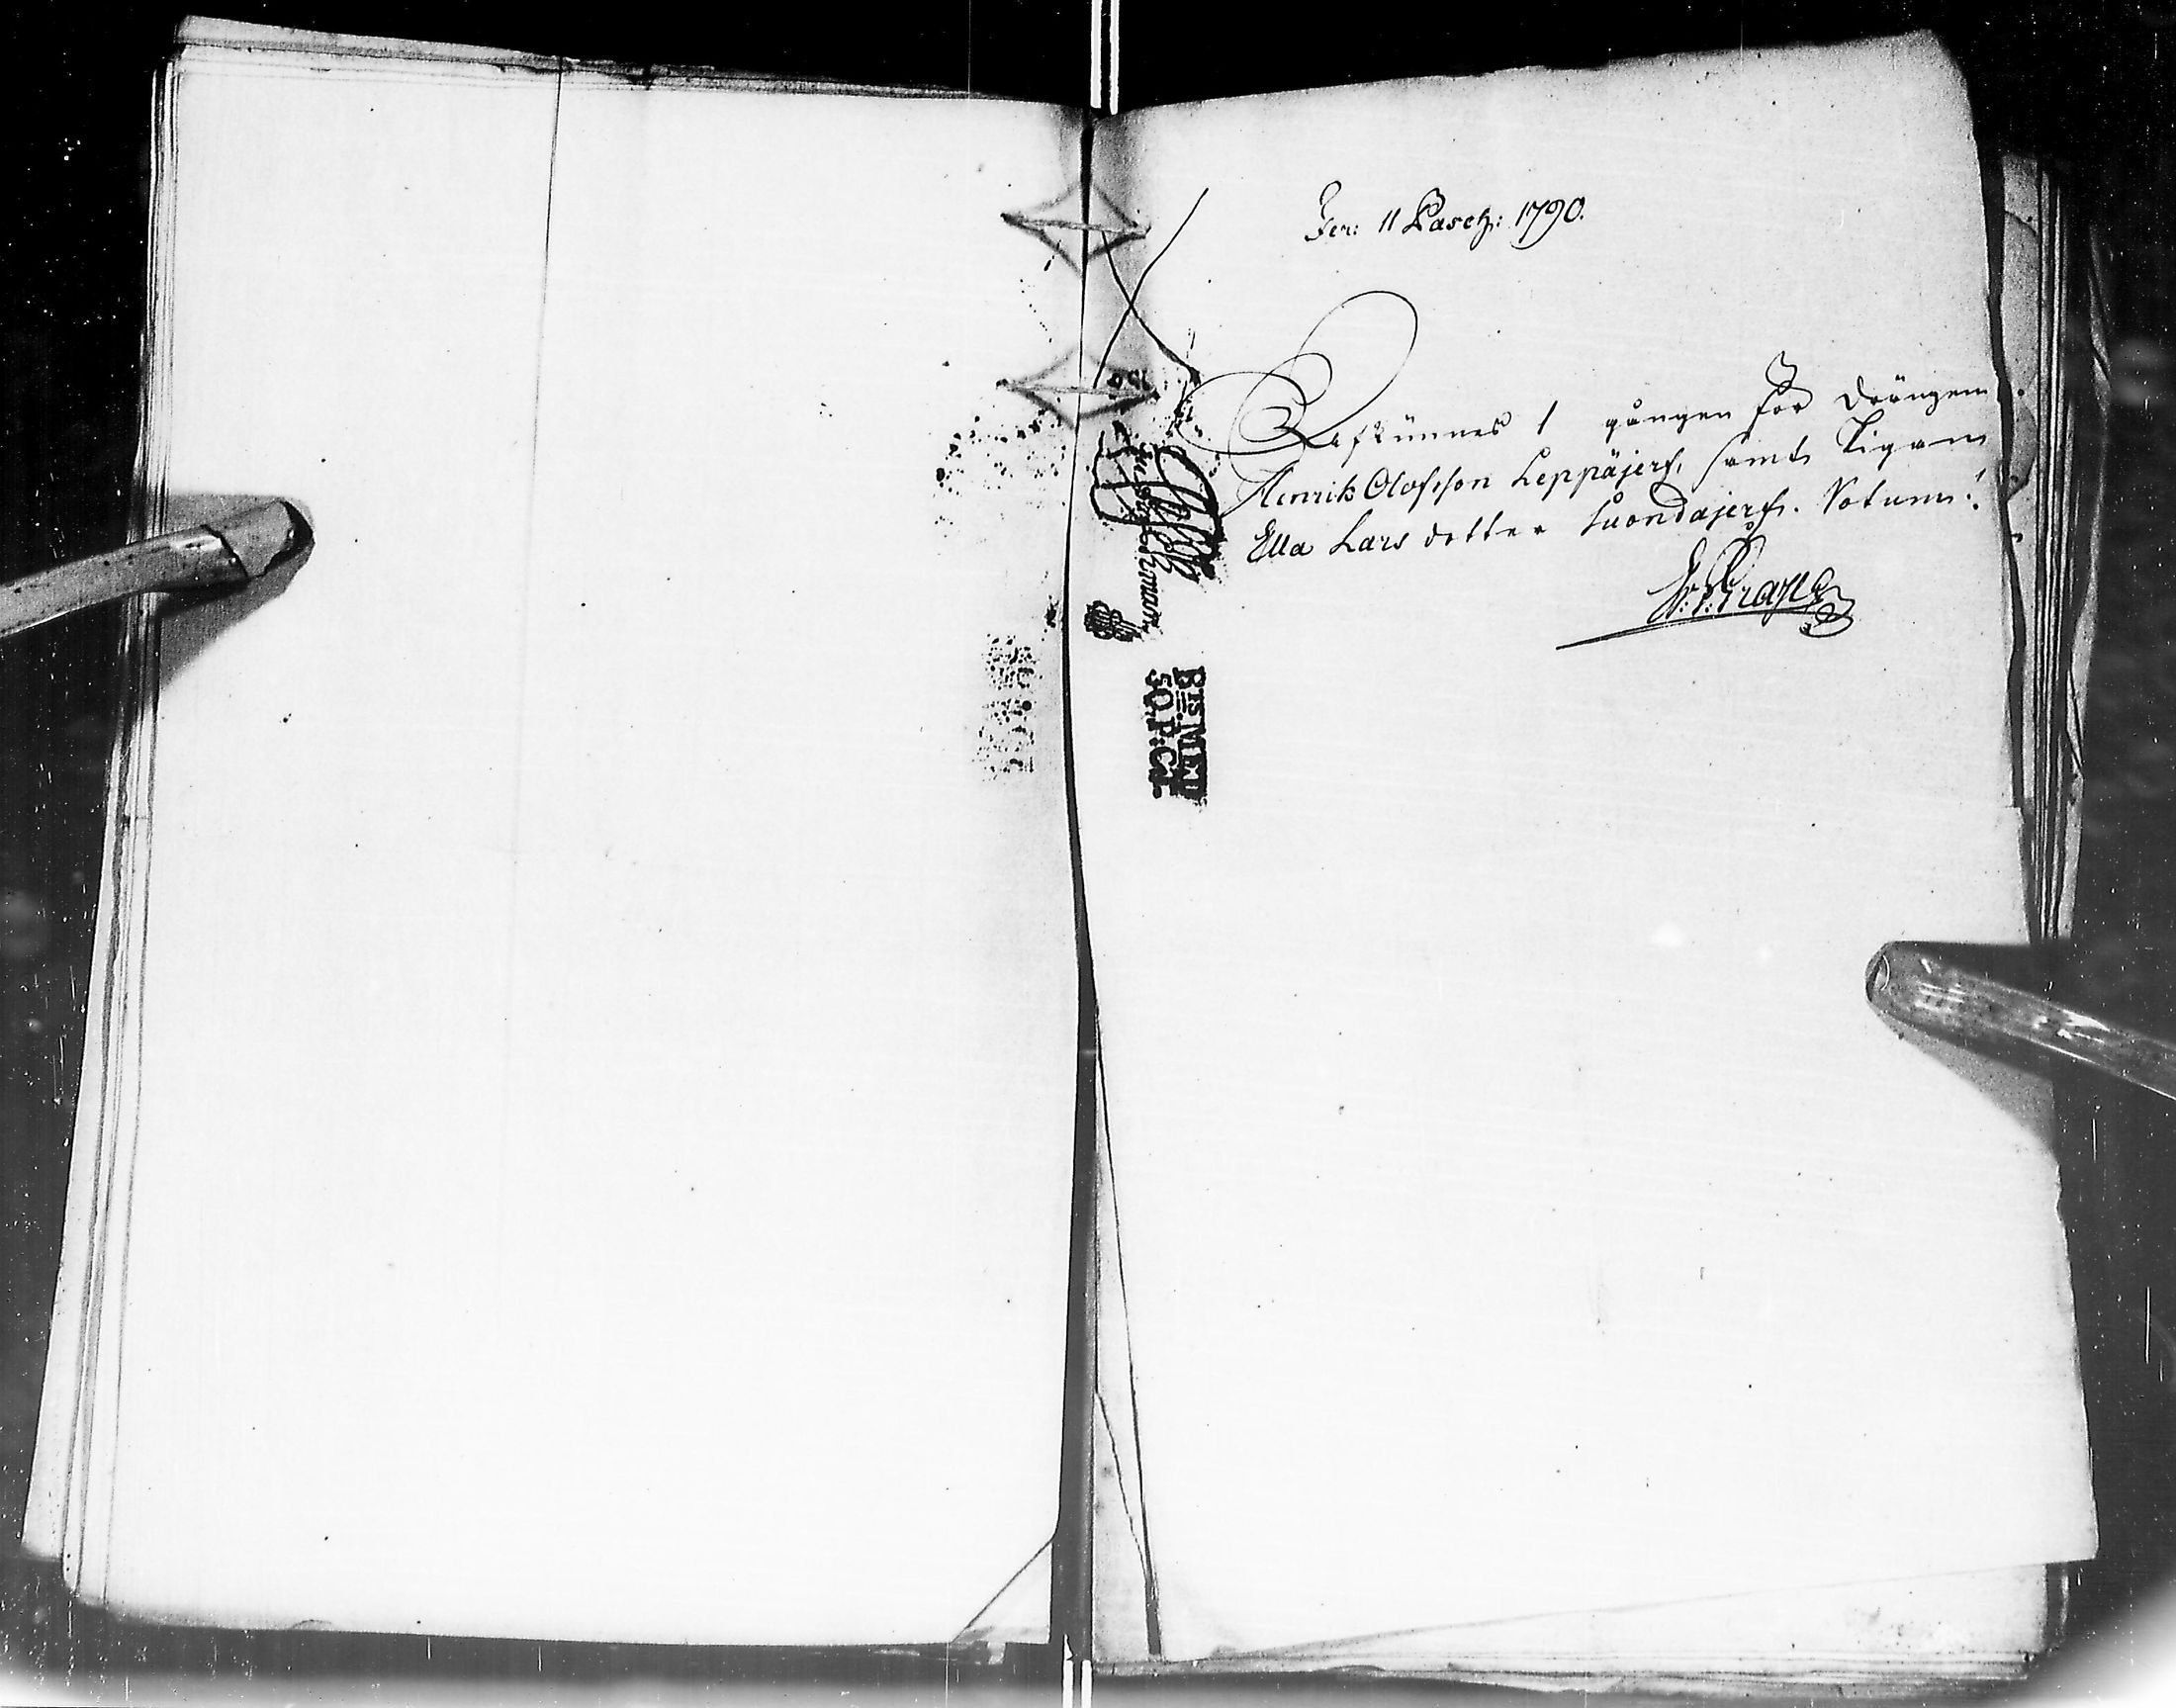 Fer: 11 Pasch: 1790.
Afkünnes 1 gången för Drängen
Henrik Olofsson Leppäjerf, samt Pigan
Ella Lars dotter Luondajerf. Votum!
BIS MILD
50. P:Ct